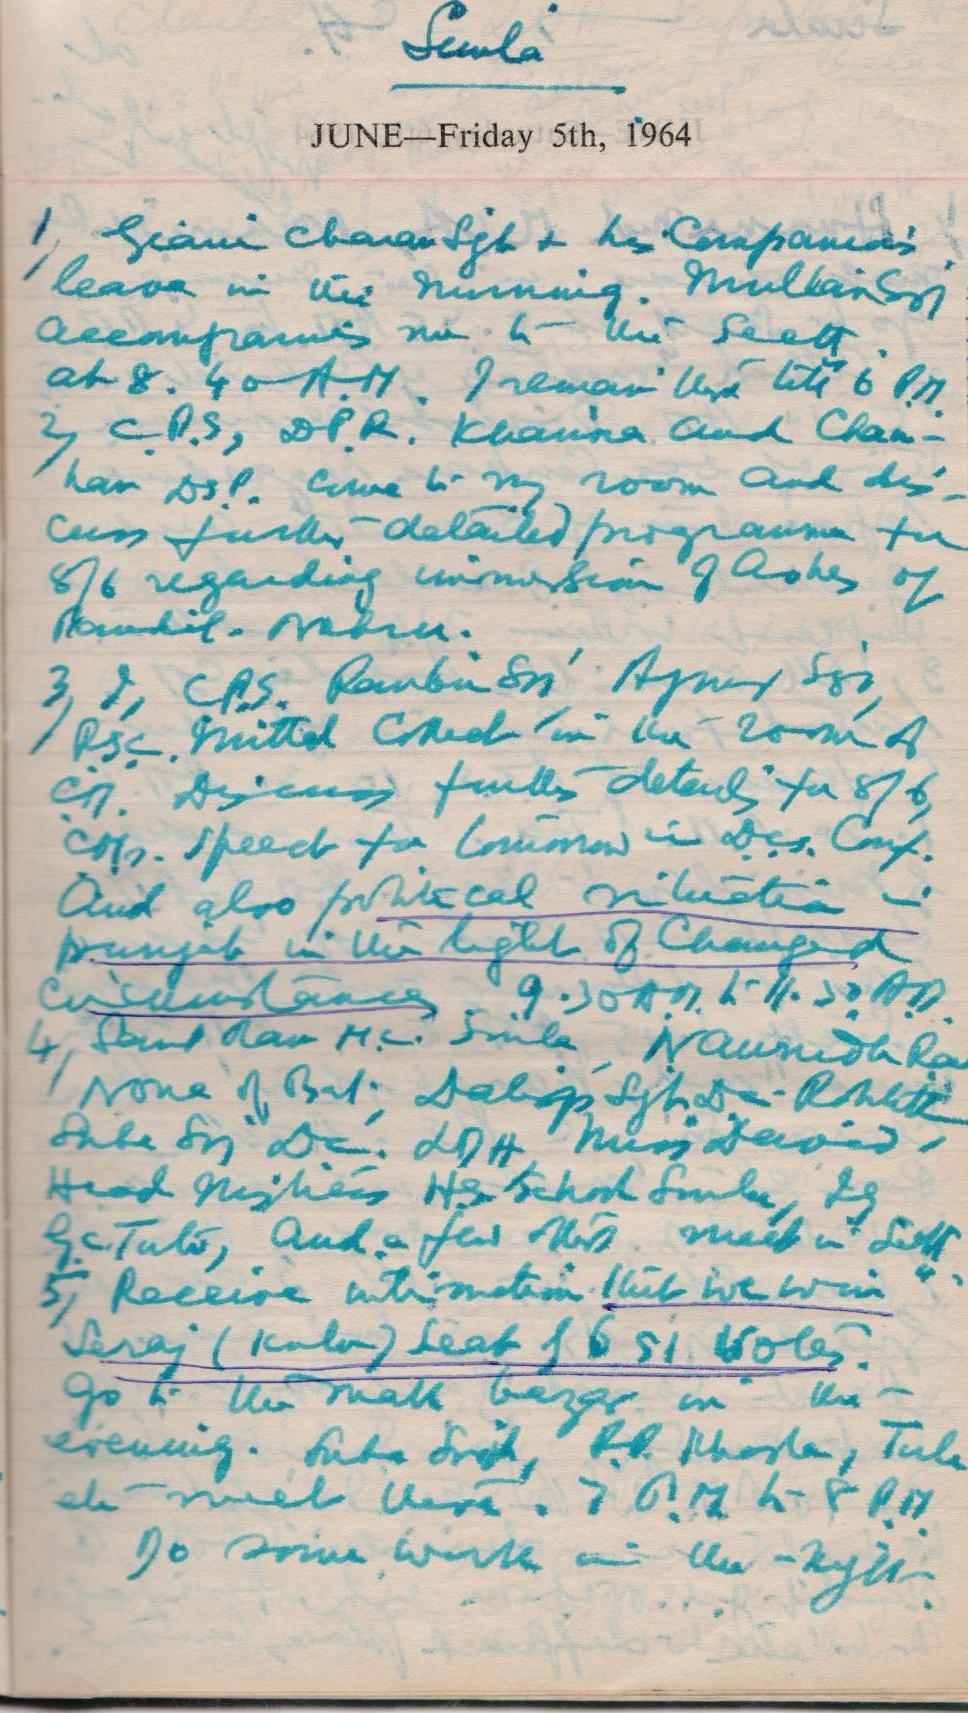 Simla
JUNE—Friday 5th, 1964
1, Giani Charan Sgh & his Companions
leave in the morning. Sgh
accompanies me to the Sectt.
at 8.40 A.M. I remain there till 6 P.M.
2, C.P.S, D.P.R. Khanna and Chau-
han DSP. come to my room and dis-
cuss further detailed programme for
8/6 regarding immersion of Ashes of
Pandit. Nehru.
3, I, C.P.S. Ranbir Sgh Ajmer Sgh,
Mittal Collect in the room of
CM. Discuss further details for 8/6,
CM's. Speech for tomorrow in Dcs. Conf.
And also political situation in
punjab in the light of Changed
Circumstances 9.30 A.M. to 11.30 A.M.
4, Sant Ram M.C. Simla,
None of Dalip Sgh Dc
Dc. LDH, Miss
Head Mistress School Simla,
and a few others meet in Sectt.
5, Receive intimation that we win
Seraj (Kulu) Seat by 651 Votes.
Go to the mall bazar in the
evening.
etc meet there. 7 P.M to 8 P.M
Do some work in the night.